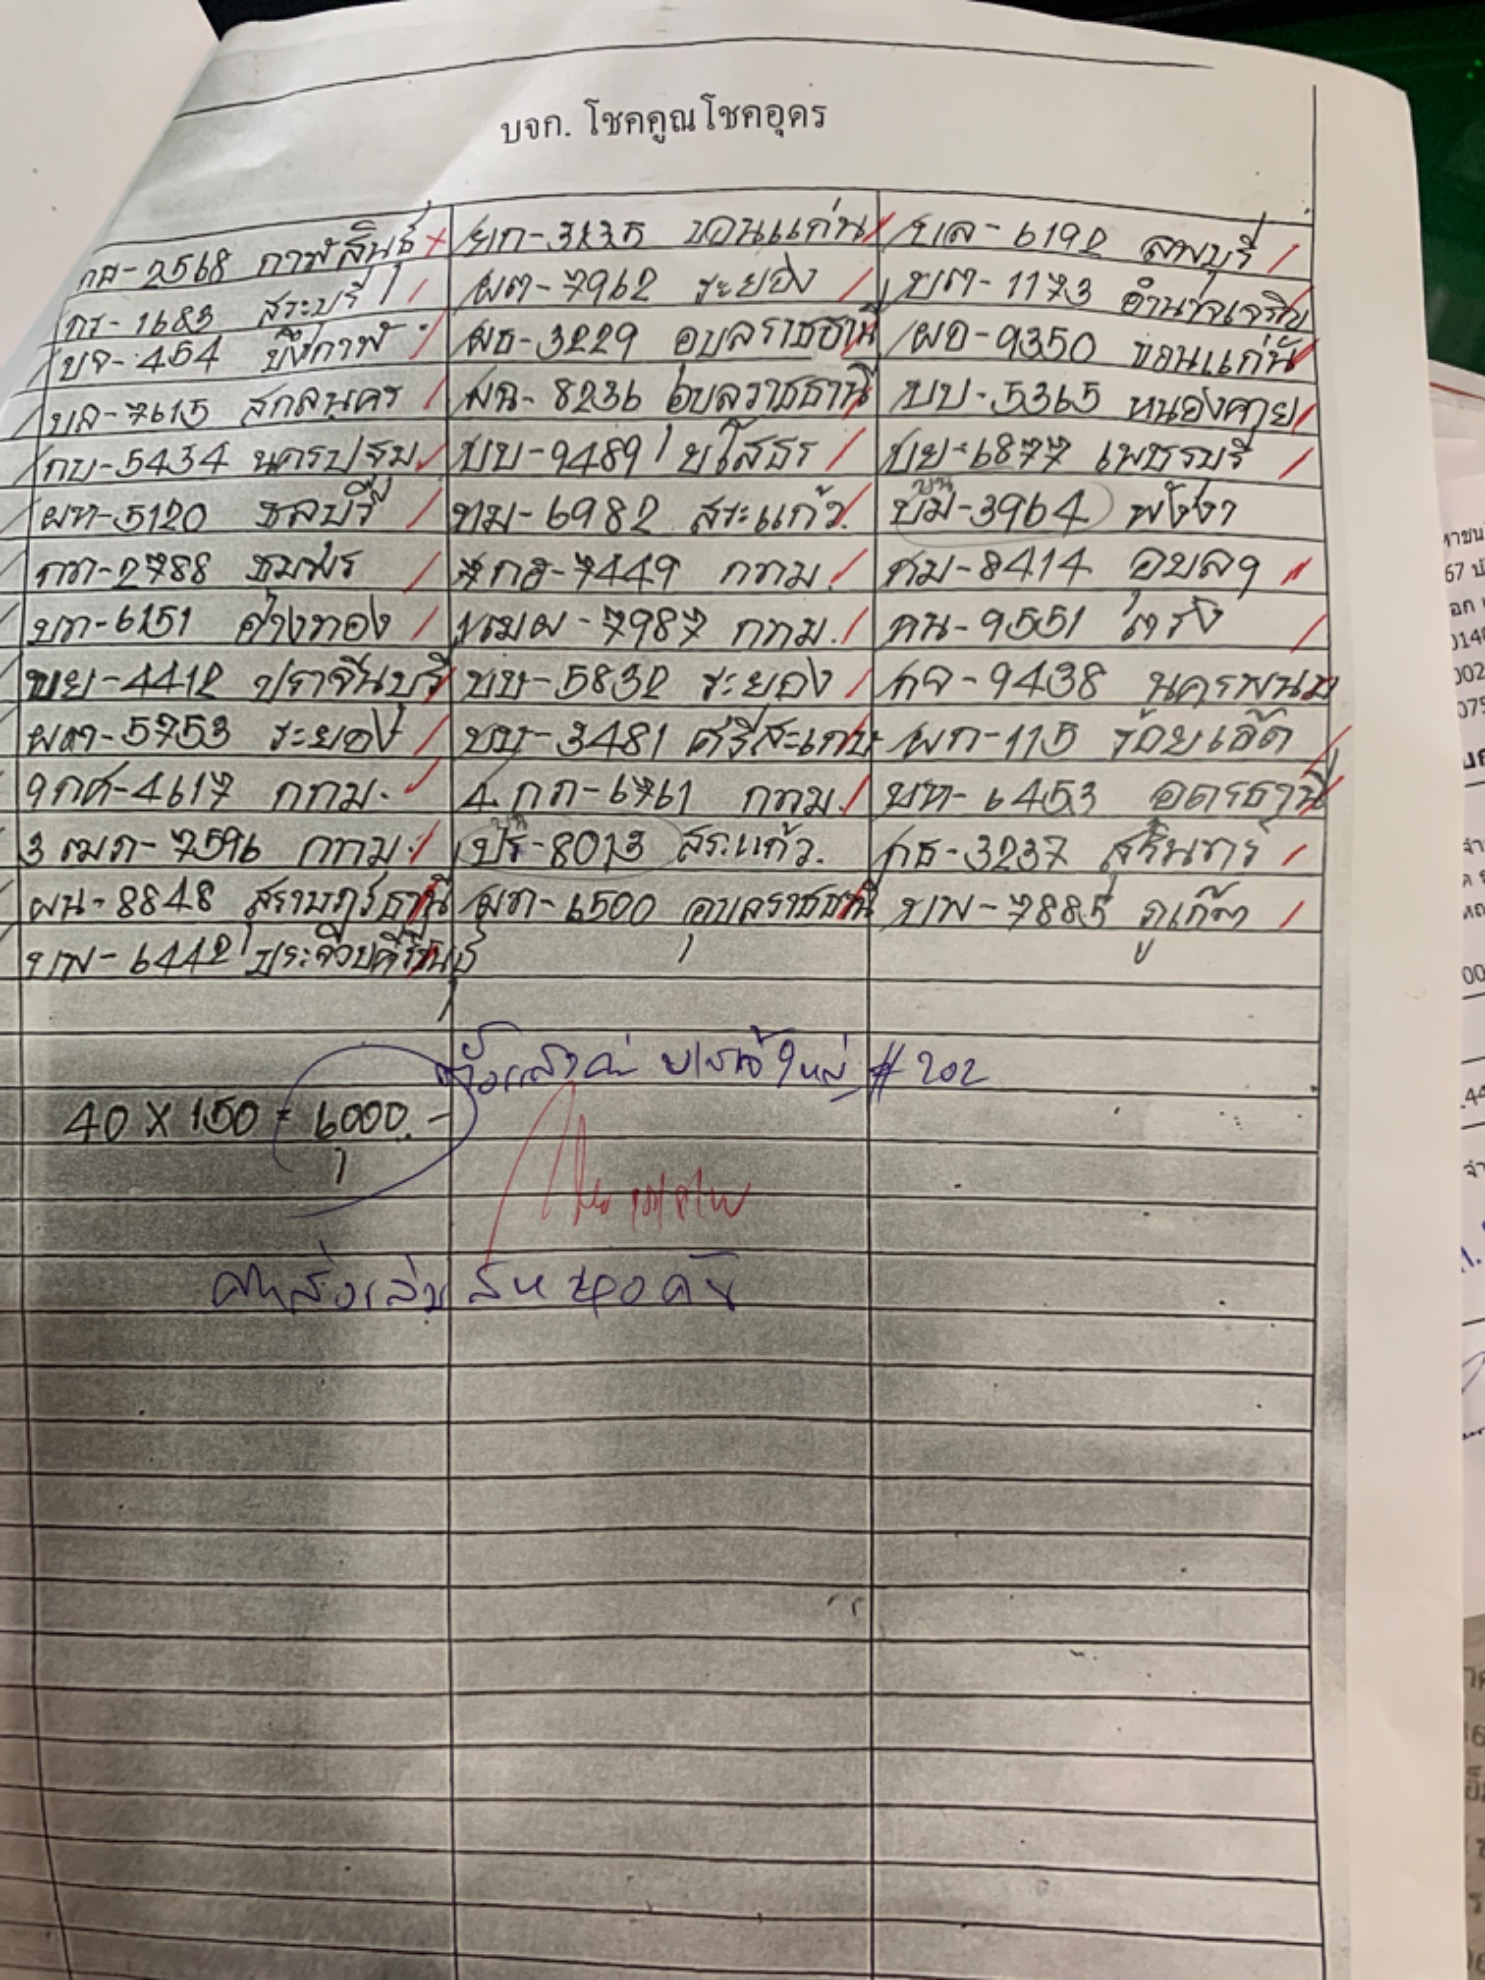 บจก. โชคคูณโชคอุดร
กส-2568 กาฬสินธุ์
ยก-3235 ขอนแก่น
บล-6192 ลพบุรี
กร-1683 สระบุรี
ผต-7962 ระยอง
บต-1173 อำนาจเจริญ
บจ-454 บึงกาฬ
ผธ-3229 อุบลราชธานี
ผอ-9350 ขอนแก่น
บล-7615 สกลนคร
ผฉ-8236 อุบลราชธานี
บบ-5365 หนองคาย
กบ-5434 นครปฐม
บบ-9489 ยโสธร
บย-6877 เพชรบุรี
ผท-5120 ชลบุรี
ทม-6982 สระแก้ว
บน
บม-3964 พังงา
กท-2788 ชุมพร
7กฮ-7449 กทม.
กม-8414 อุบลฯ
บท-6151 อ่างทอง
1ฒผ-7987 กทม.
คน-9551 ตรัง
ขย-4412 ปราจีนบุรี
ขบ-5832 ระยอง
กจ-9438 นครพนม
ผต-5753 ระยอง
บบ-3481 ศรีสะเกษ
ผก-115 ร้อยเอ็ด
9กศ-4617 กทม.
4กภ-6761 กทม.
บท-6453 อุดรธานี
3ฒภ-7596 กทม.
บร-8013 สระแก้ว.
กธ-3237 สุรินทร์
ผน-8848 สุราษฎร์ธานี
ผท-6500 อุบลราชธานี
บพ-7885 ภูเก็ต
บพ-6442 ประจวบคีรีขันธ์
#202
40 X 150 = 6000.-